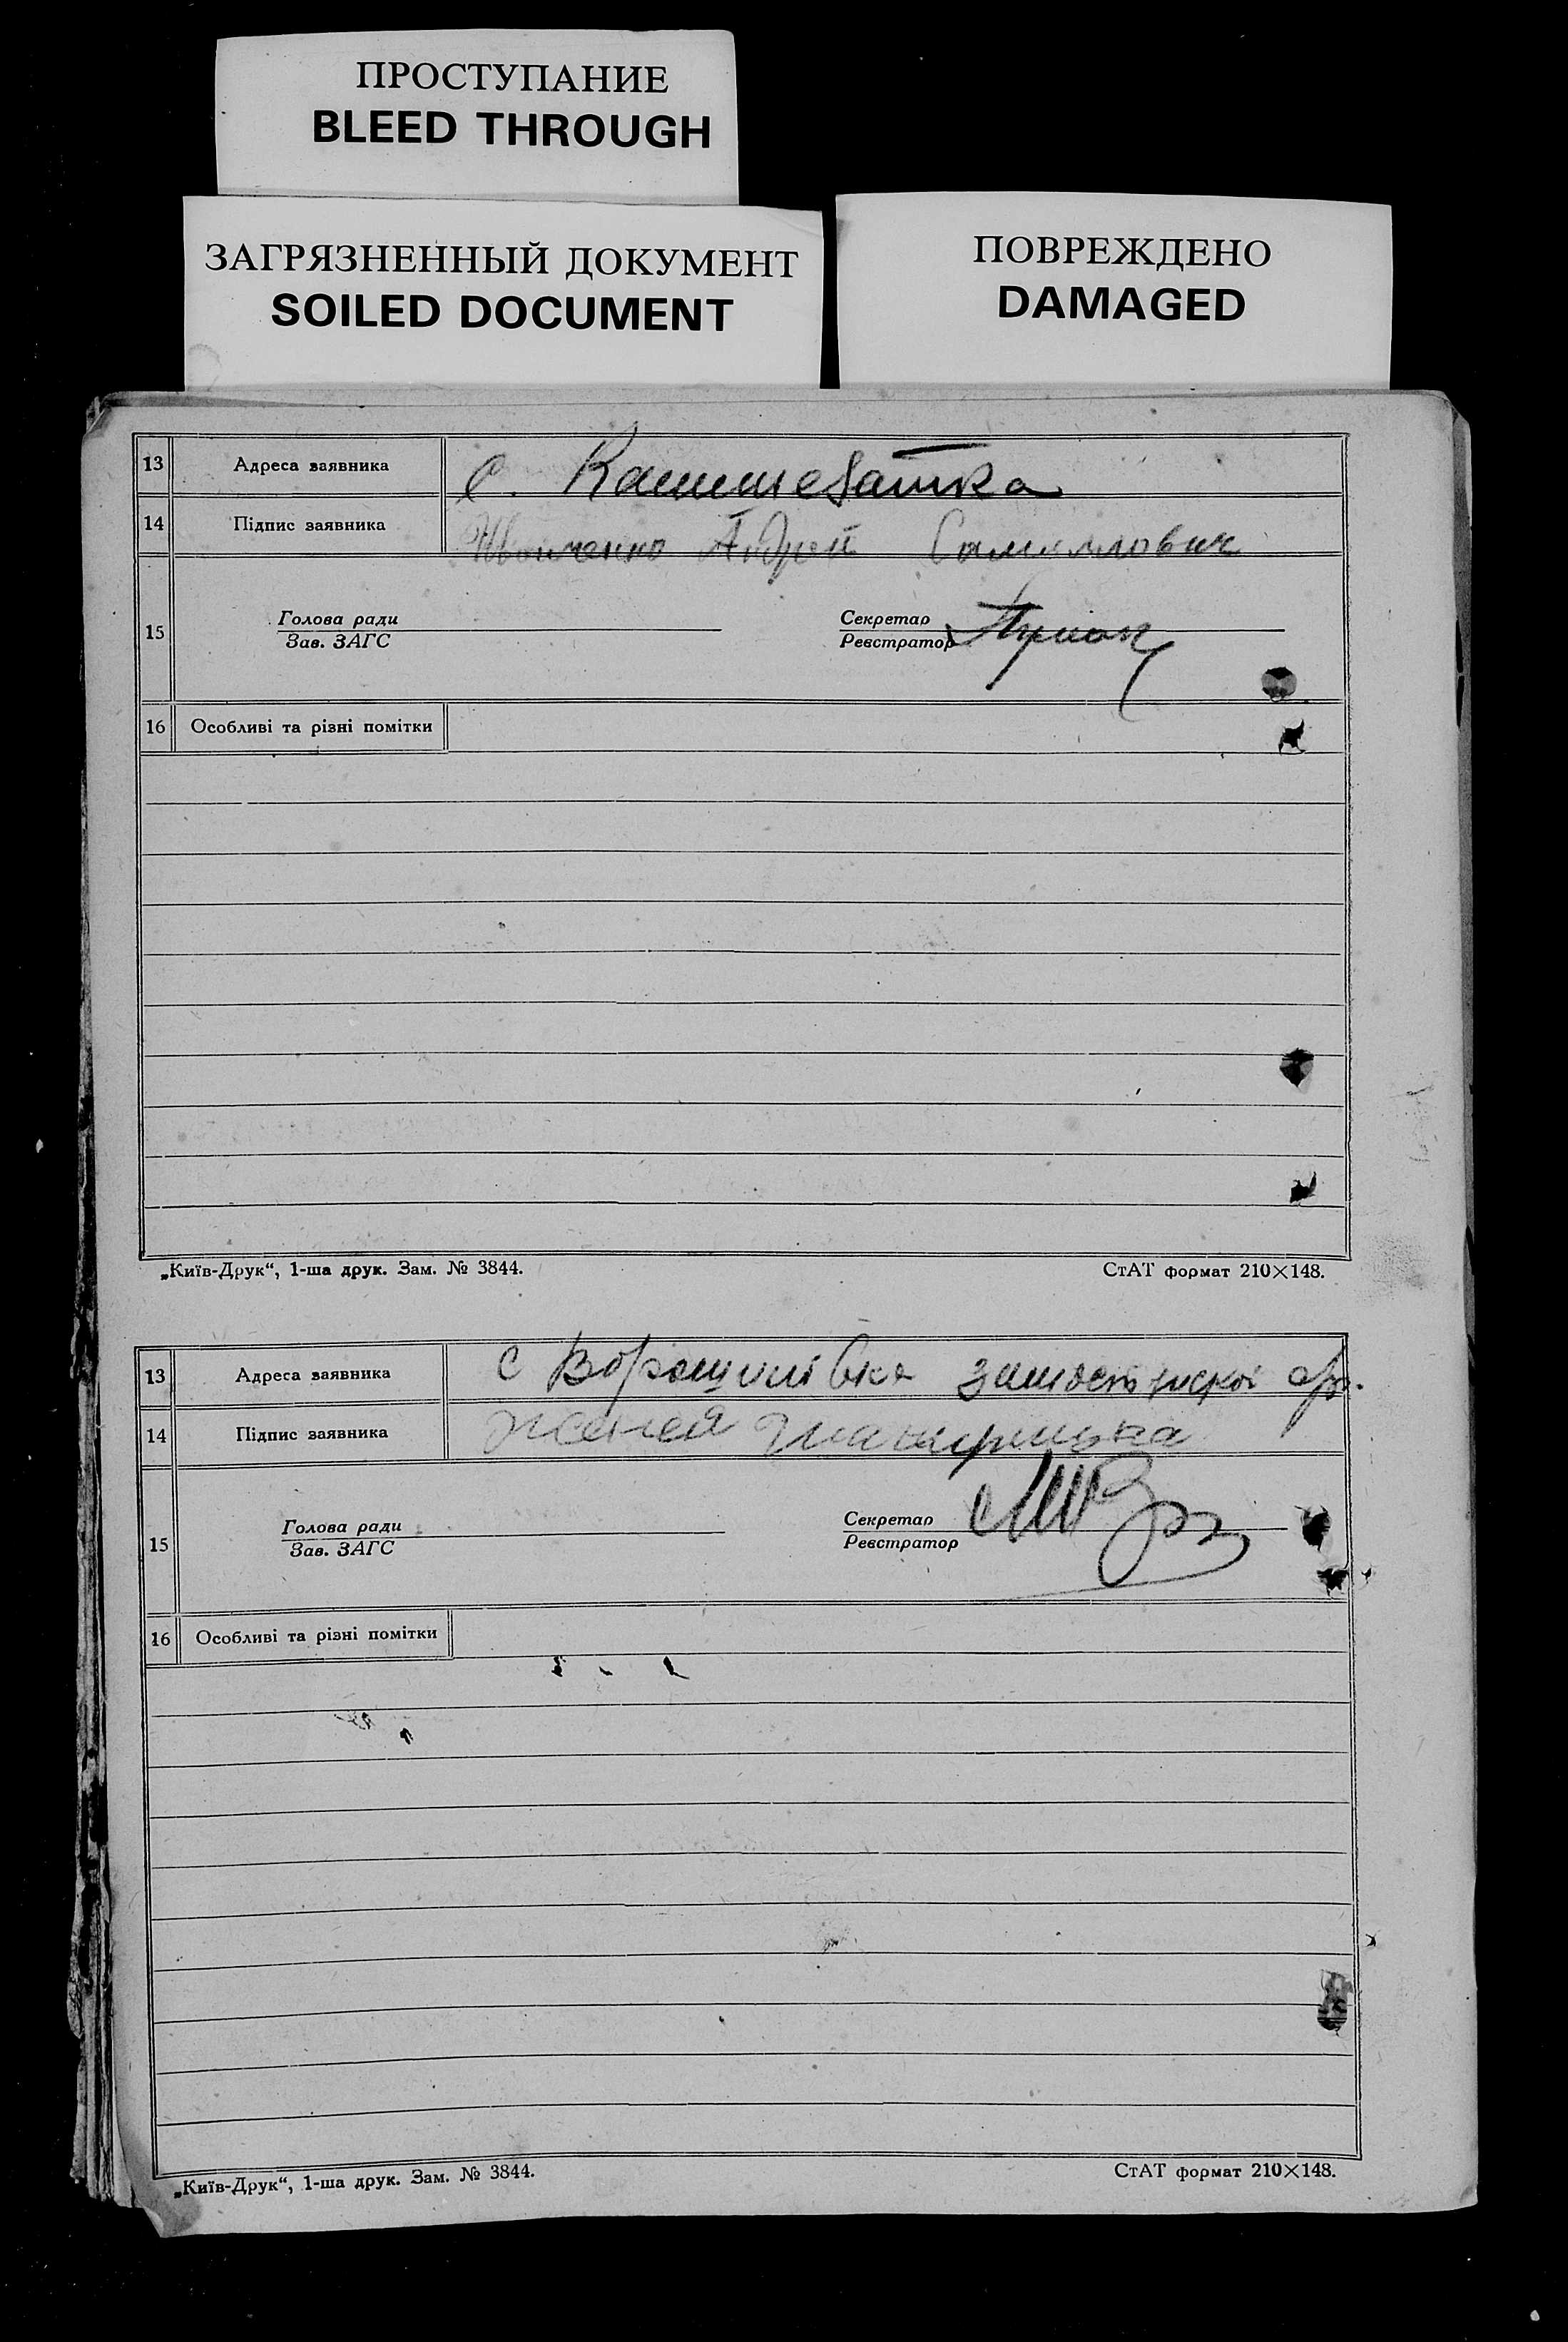 ПРОСТУПАНИЕ
BLEED THROUGH
ЗАГРЯЗНЕННЫЙ ДОКУМЕНТ
SOILED DOCUMENT
ПОВРЕЖДЕНО
DAMAGED
13 Адреса заявника с. Каншеватка
14 Підпис заявника Андрей
15 Голова ради Секретар
Зав. ЗАГС Реєстратор
16 Особливі та різні помітки
„Київ-Друк“, 1-ша друк. Зам. № 3844. СтАТ формат 210×148.
13 Адреса заявника с Ворошилівка
14 Підпис заявника
15 Голова ради Секретар
Зав. ЗАГС Реєстратор
16 Особливі та різні помітки
„Київ-Друк“, 1-ша друк. Зам. № 3844. СтАТ формат 210×148.